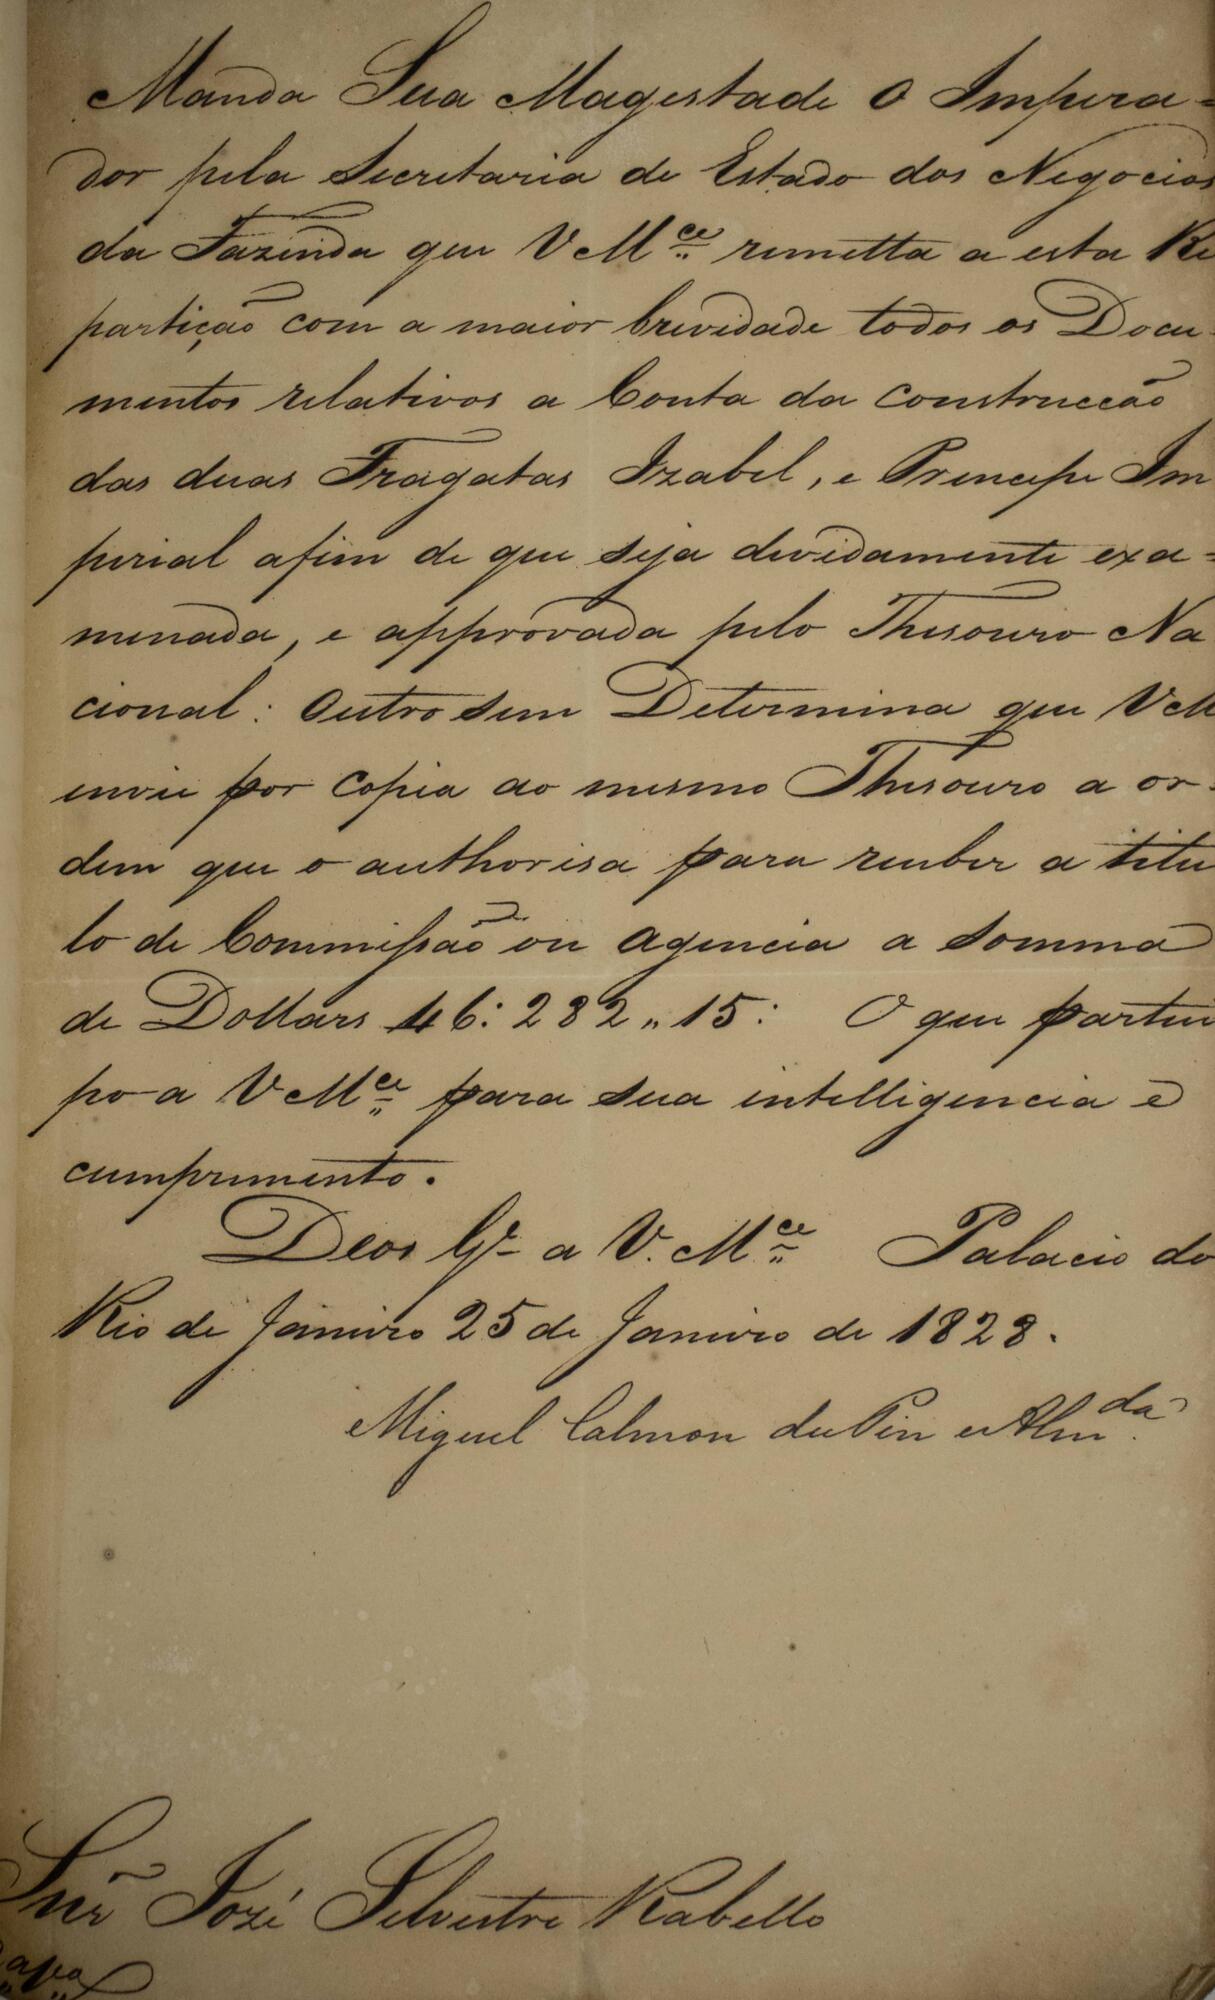 Manda Sua Magestade o Impera=
dor pela Secretaria de Estado dos Negocios
da Fazenda que VM.ce remetta a esta Re
partição com a maior brevidade todos os Docu-
mentos relativos a Conta da construcção
das duas Fragatas Izabel, e Principe Im
perial afim de que seja devidamente exa=
minada, e approvada pelo Thesouro Na
cional: Outro sim Determina que VM
envie por copia ao mesmo Thesouro a or-
dem que o authorisa para receber a titu
lo de Commissão ou agencia a somma
de Dollars 46:282,,15: O que partici
po a VM.ce para sua intelligencia e
cumprimento.
Deos G.e a V. M.ce Palacio do
Rio de Janeiro 25 de Janeiro de 1828.
Miguel Calmon du Pin e Alm.da
Snr José Silvestre Rabello